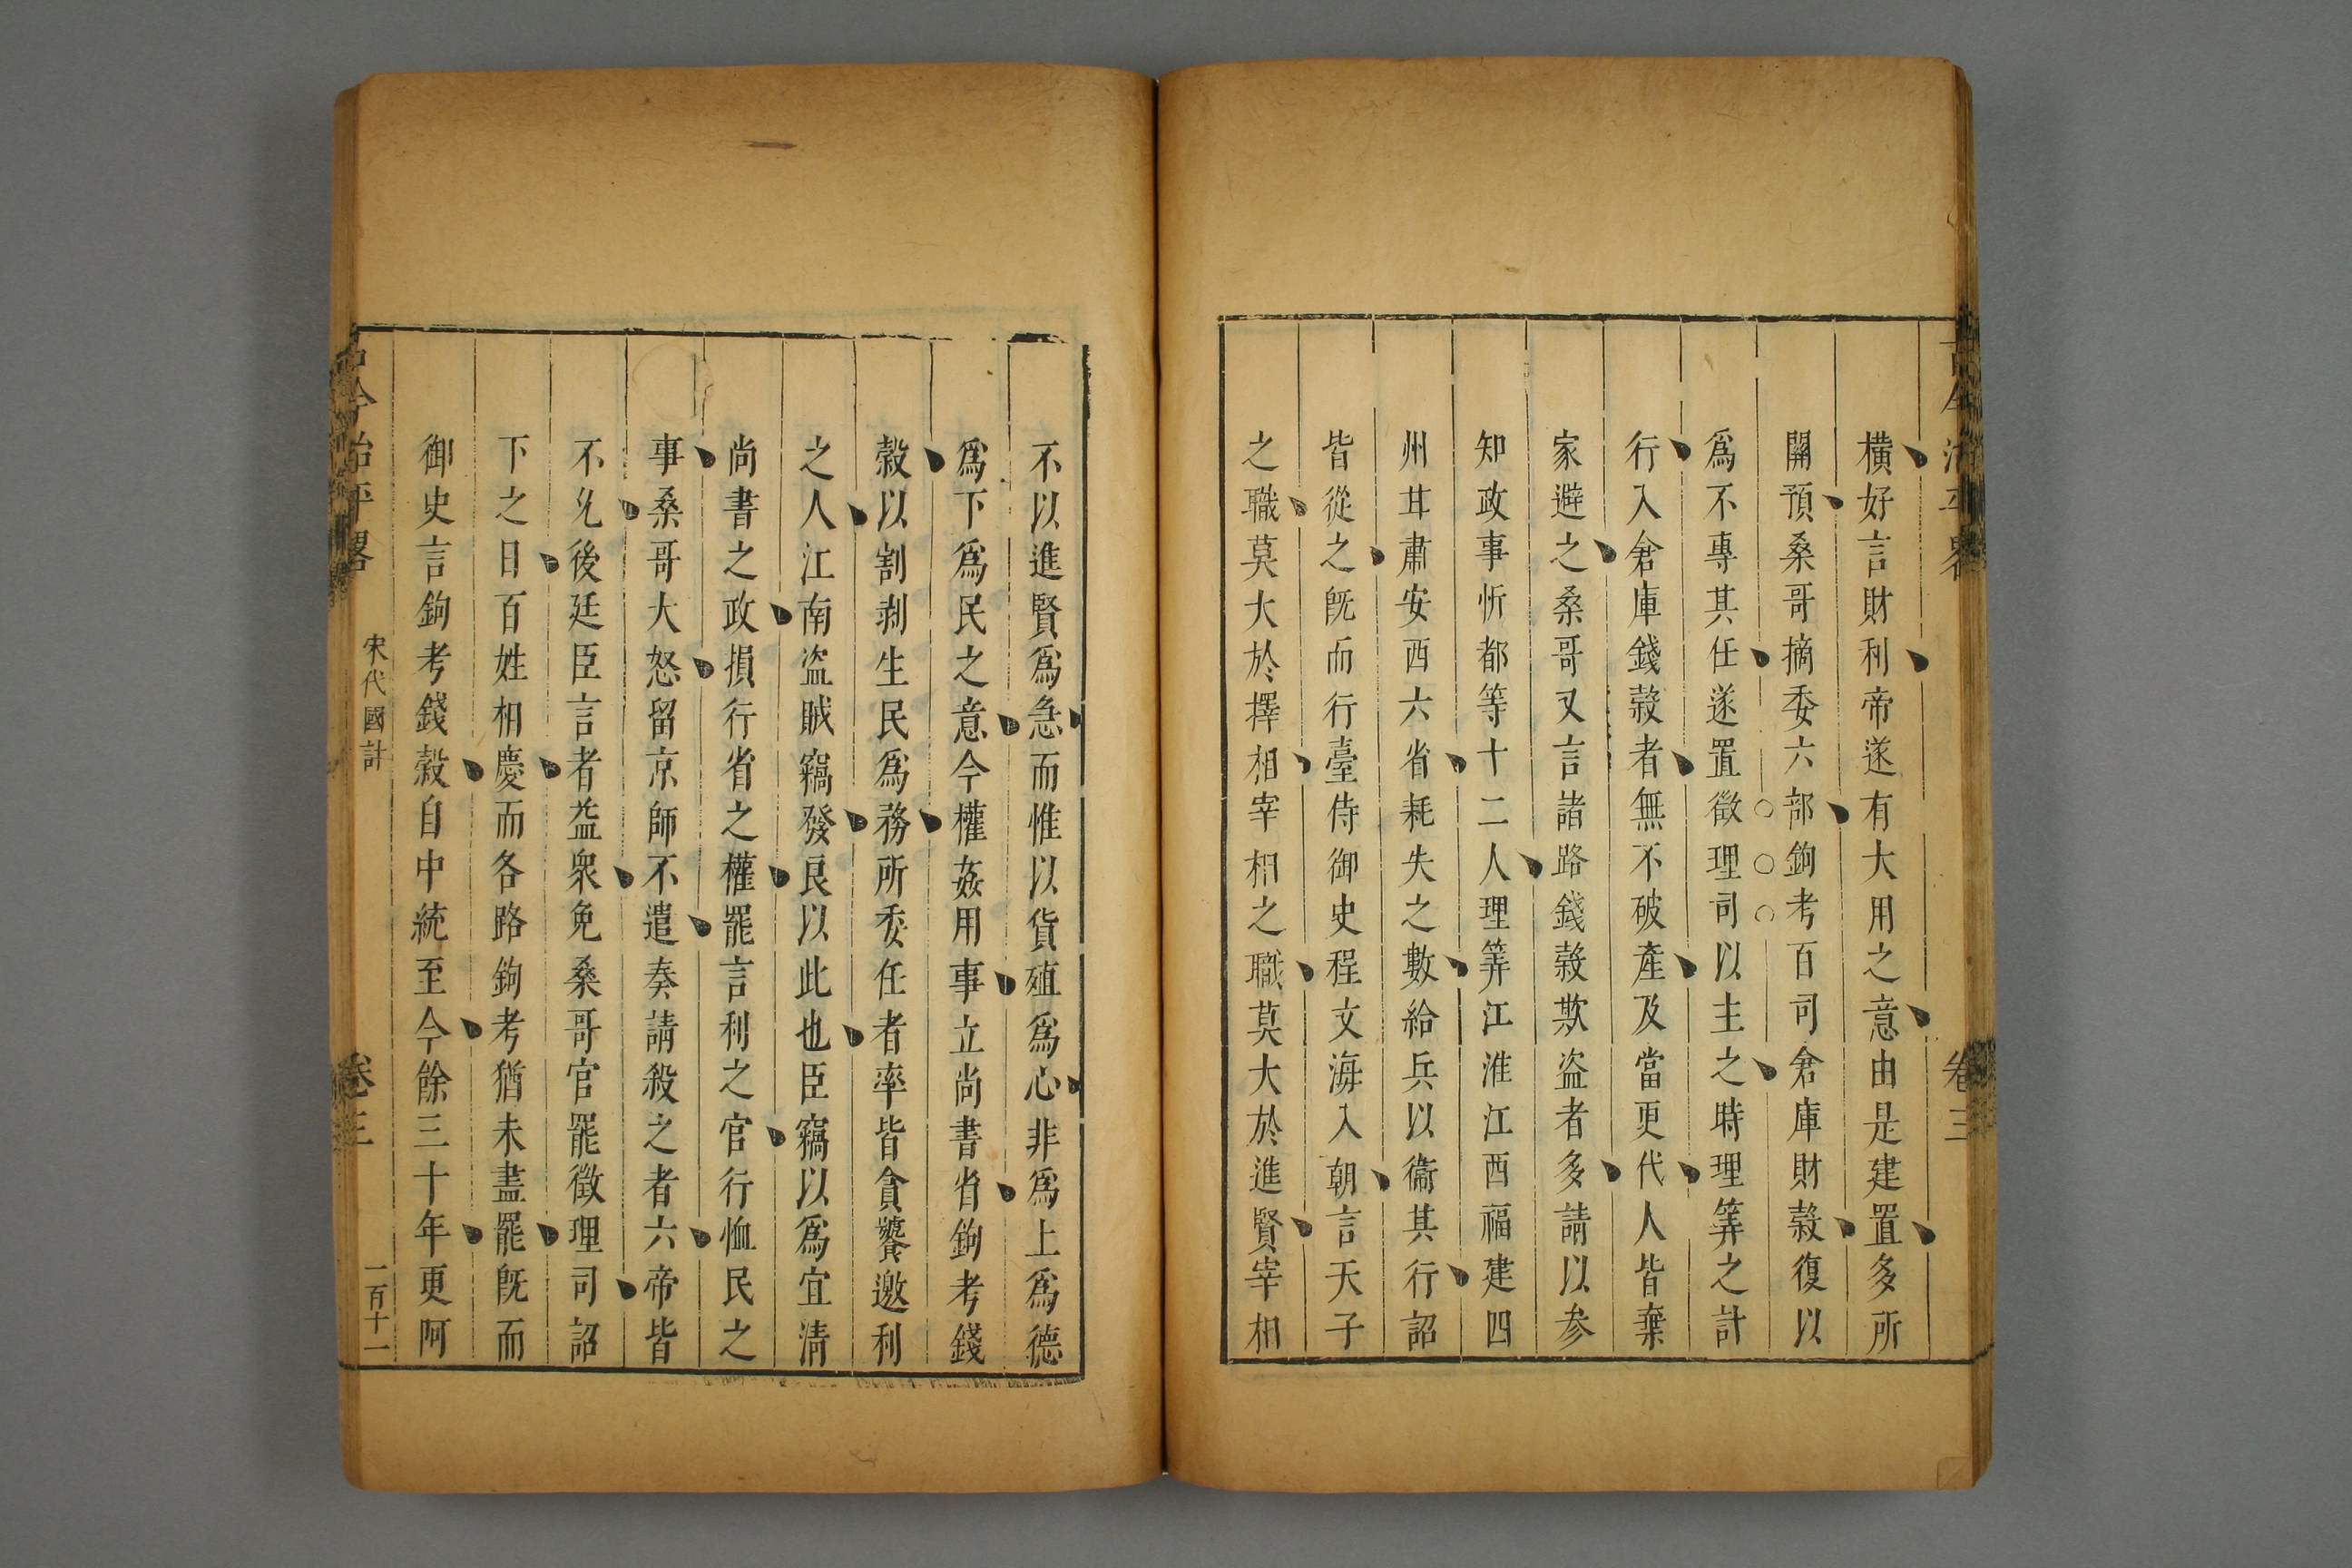 古今治平畧　卷三
橫好言財利帝遂有大用之意由是建置多所
開預桑哥摘委六部鉤考百司倉庫財穀復以
爲不專其任遂置徵理司以主之時理筭之計
行入倉庫錢穀者無不破產及當更代人皆棄
家避之桑哥又言諸路錢穀欺盗者多請以參
知政事忻都等十二人理筭江淮江西福建四
州甘肅安西六省耗失之數給兵以衞其行詔
皆從之旣而行臺侍御史程文海入朝言天子
之職莫大於擇相宰相之職莫大於進賢宰相
不以進賢爲急而惟以貨殖爲心非爲上爲德
爲下爲民之意今權姦用事立尚書省鉤考錢
穀以割剥生民爲務所委任者率皆貪饕邀利
之人江南盗賊竊發良以此也臣竊以爲宜清
尚書之政損行省之權罷言利之官行恤民之
事桑哥大怒留京師不遣奏請殺之者六帝皆
不允後廷臣言者益衆免桑哥官罷徵理司詔
下之日百姓相慶而各路鉤考猶未盡罷旣而
御史言鉤考錢穀自中統至今餘三十年更阿
古今治平畧　宋代國計　卷三　一百十一